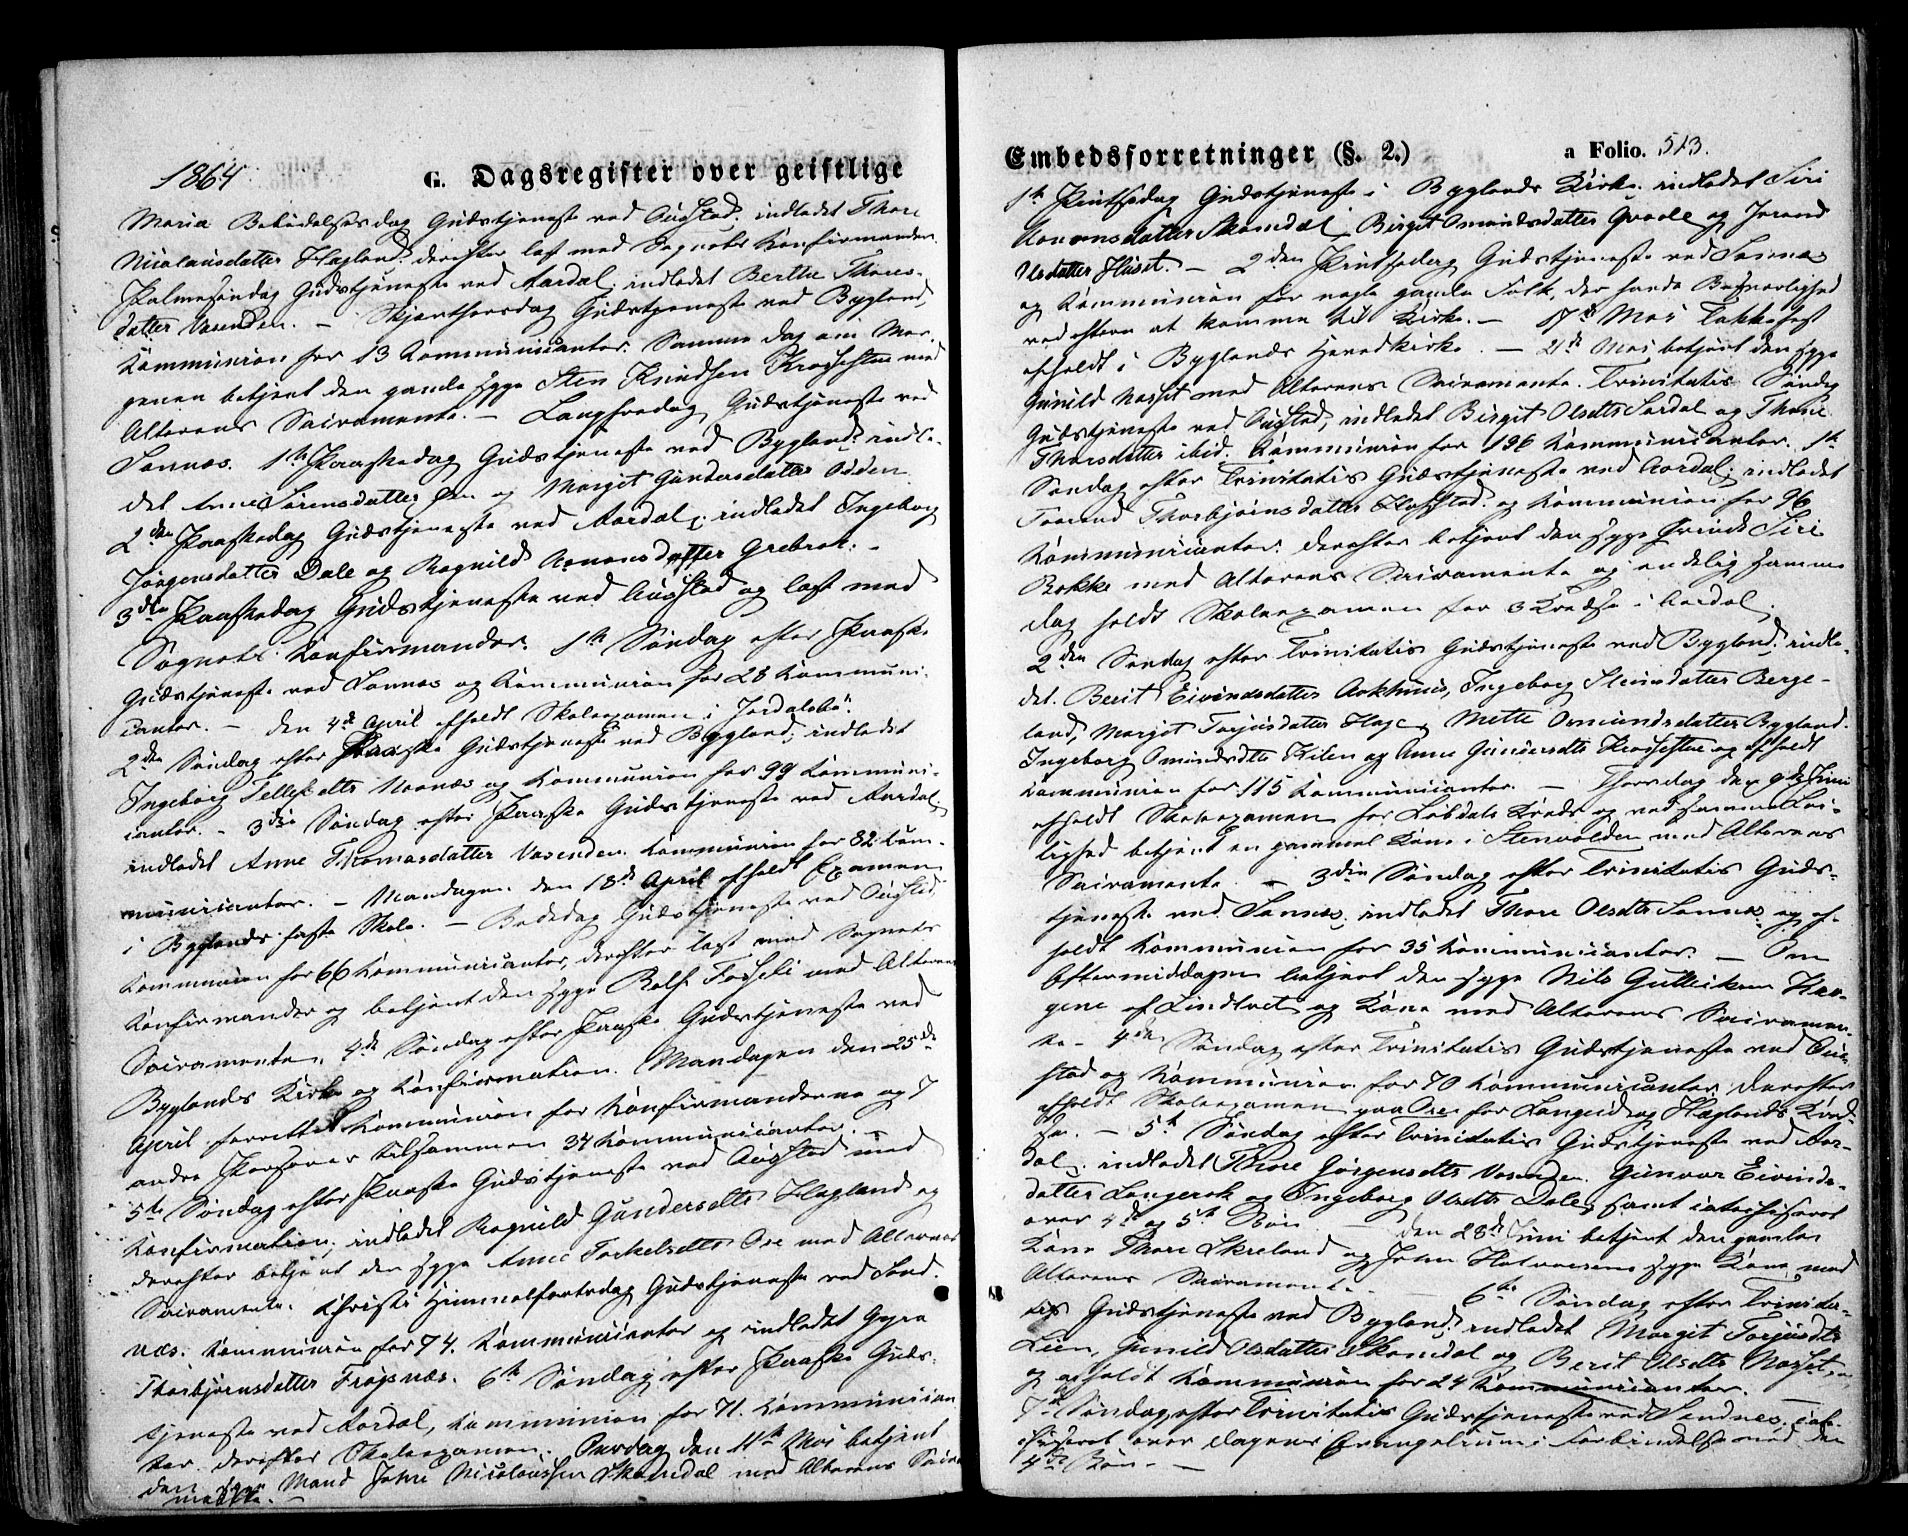 1864
G. Dagsregister over geistlige
Maria Bebudelsesdag Gudstjeneste ved Austad. indledet Thore
Nicolausdatter Hagland. derefter læst med Sognets Konfirmander.
Palmesøndag Gudstjeneste ved Aardal; indledet Berthe Thores-
datter Vasenden. – Skjærthorsdag Gudstjeneste ved Bygland,
Kommunion for 13 Kommunicanter. Samme dag om Mor-
genen betjent den gamle syge Sten Knudsen Krossestue med
Alterens Sacramente. – Langfredag Gudstjeneste ved
Sannæs. 1ste Paaskedag Gudstjeneste ved Bygland. indle-
det Anne Sørensdatter og Margit Gundersdatter Odden.
2den Paaskedag Gudstjeneste ved Aardal; indledet Ingeborg
Jørgensdatter Dale og Ragnild Aanonsdatter Grebrok. –
3die Paaskedag Gudstjeneste ved Austad og læst med
Sognets Konfirmander. 1ste Søndag efter Paaske
Gudstjeneste ved Sannes og Kommunion for 28 Kommuni-
canter. – den 4de April afholdt Skoleexamen i Jordalsbø.
2den Søndag efter Paaske Gudstjeneste ved Bygland; indledet
Ingeborg Tellefsdtr Naanæs og Kommunion for 99 Kommuni-
canter. – 3die Søndag efter Paaske Gudstjeneste ved Aardal,
indledet Anne Thomasdatter Vasenden. Kommunion for 82 Kom-
municanter. – Mandagen den 18de April afholdt Examen
i Byglands faste Skole. – Bededag Gudstjeneste ved Austad.
Kommunion for 66 Kommunicanter, derefter læst med Sognets
Konfirmander og betjent den syge Rolf Fosseli med Alterens
Sacramente. 4de Søndag efter Paaske Gudstjeneste ved
Byglandes Kirke og Konfirmation. Mandagen den 25de
April forrettet Kommunion for Konfirmanderne og 7
andre Personer tilsammen 34 Kommunicanter. –
5te Søndag efter Paaske Gudstjeneste ved Austad med
Konfirmation; indledet Ragnild Gundersdtr Hagland og
derefter betjent den syge Anne Torkelsdtr Ose med Alterens
Sacramente. Christi Himmelfartsdag Gudstjeneste ved Sand-
næs. Kommunion for 74 Kommunicanter og indledet Gyro
Thorbjørnsdatter Frøysnæs. 6te Søndag efter Paaske Guds-
tjeneste ved Aardal, Kommunion for 71 Kommunican-
ter. derefter Skoleexamen. Onsdag den 11te Mai betjent
den syge Mand John Nicolaussen Skomedal med Alterens Sacra-
mente. –
Embedsforretninger (§. 2.) a Folio. 513.
1ste Pintsedag Gudstjeneste i Byglands Kirke. indledet Siri
Aanonsdatter Skomdal, Birgit Omundsdatter Qvaale og Jorand
Olsdatter Huset. – 2den Pintsedag Gudstjeneste ved Sannes
og Kommunion for nogle gamle Folk, der havde Besværlighed
ved oftere at komme til Kirke. – 17de Mai Takkefest
afholdt i Byglands Hovedkirke. – 21de Mai betjent den syge
Gunild Nasset med Alterens Sacramente. Trinitatis Søndag
Gudstjeneste ved Austad, indledet Birgit Olsdtr Sordal og Thore
Thorsdatter ibid. Kommunion for 196 Kommunicanter. 1ste
Søndag efter Trinitatis Gudstjeneste ved Aardal; indledet
Taarand Thorbjørnsdatter Flogstad. og Kommunion for 96
Kommunicanter. derefter betjent den syge Qvinde Siri
Bakke med Alterens Sacramente og endelig samme
dag holdt Skoleexamen for 3 Kredse i Aardal.
2den Søndag efter Trinitatis Gudstjeneste ved Bygland. indle-
det. Berit Eivindsdatter Aakhuus, Ingeborg Steinsdatter Berge-
land, Margit Torjusdatter Hage, Mette Osmundsdatter Bygland.
Ingeborg Omundsdtr Kilen og Anne Gundersdtr Krossestue og afholdt
Kommunion for 115 Kommunicanter. – Thorsdag den 9de Juni
afholdt Skoleexamen for Løbdals Kreds og ved samme Lei-
lighed betjent en gammel Kone i Stenvolden med Alterens
Sacramente. – 3die Søndag efter Trinitatis Guds-
tjeneste ved Sannes, indledet Thore Olsdtr Sannes og af-
holdt Kommunion for 35 Kommunicanter. – Om
Eftermiddagen betjent den syge Nils Gulleiksen Hau-
gene af Lindtvet og Kone med Alterens Sacramen-
te – 4de Søndag efter Trinitatis Gudstjeneste ved Au-
stad og Kommunion for 70 Kommunicanter; derefter
afholdt Skoleexamen paa Ose for Langeid og Haglands Kred-
se. – 5te Søndag efter Trinitatis Gudstjeneste ved Aar-
dal; indledet Thore Jørgensdtr Vasenden. Gunvor Eivinds-
datter Langerak og Ingeborg Olsdtr Dale, samt catechiseret
over 4de og 5te Bøn. – den 28de Juni betjent den gamle
Kone Thore Skreland og John syge Kone med
Alterens Sacrament. – 6te Søndag efter Trinita-
tis Gudstjeneste ved Bygland. indledet Margit Torjusdtr
Lien, Gunild Olsdatter Skomdal og Berit Olsdtr Nasset,
og afholdt Kommunion for 24 Kommunicanter. –
7de Søndag efter Trinitatis Gudstjeneste ved Sandnes. cate-
chiseret over dagens Evangelium i Forbindelse med den
4de Bøn. –